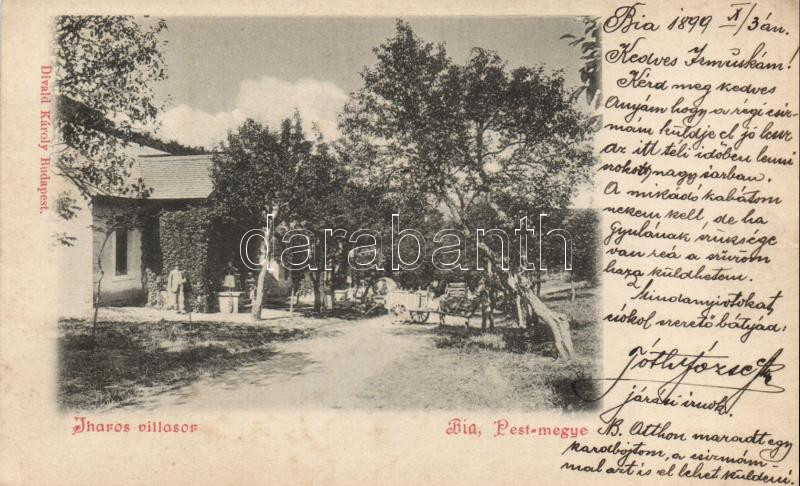 Bia 1899 X/3án.
Kedves Irmuskám!
Kérd meg kedves
Anyám hogy a régi csiz-
mám küldje el jó lesz
az itt téli időben lenni
nagy sárban.
A mikádó kabátom
nekem kell, de ha
Gyulának szüksége
van reá a szűröm
haza küldhetem.
Mindanyiotokat
csókol szerető bátyád:
Tóth József
járási irnok.
NB. Otthon maradt egy
kardbojtom, a csizmám-
mal azt is el lehet küldeni.
Divald Károly Budapest.
darabanth.com
Iharos villasor
Bia, Pest-megye